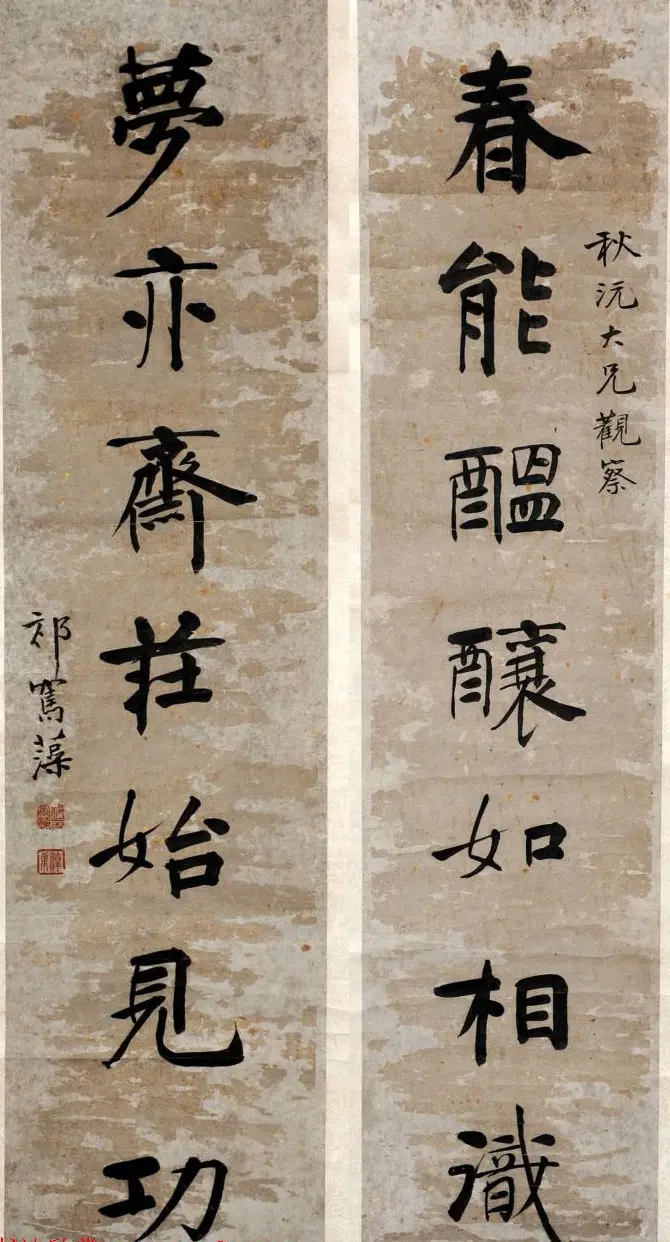 秋沅大兄觀察
春能醞釀如相識
夢亦齋莊始見功
祁寯藻